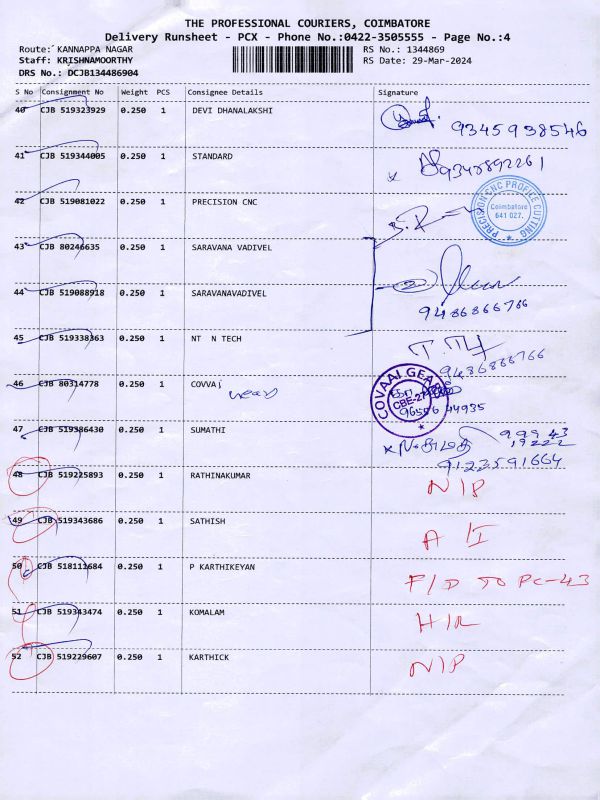 THE PROFESSIONAL COURIERS, COIMBATORE
Delivery Runsheet - PCX - Phone No.:0422-3505555 - Page No.:4
Route: KANNAPPA NAGAR RS No.: 1344869
Staff: KRISHNAMOORTHY RS Date: 29-Mar-2024
DRS No.: DCJB134486904
S No Consignment No Weight PCS Consignee Details Signature
40 CJB 519323929 0.250 1 DEVI DHANALAKSHI
9345938546
41 CJB 519344005 0.250 1 STANDARD
42 CJB 519081022 0.250 1 PRECISION CNC
PRECISION CNC PROFILE CUTTING
Coimbatore
641 027.
43 CJB 80246635 0.250 1 SARAVANA VADIVEL
44 CJB 519088918 0.250 1 SARAVANAVADIVEL
9486866766
45 CJB 519338363 0.250 1 NT N TECH
9486866766
46 CJB 80314778 0.250 1 COVVAI
COVAAI GEAR
CBE-27
96556 44935
47 CJB 519386430 0.250 1 SUMATHI
9123591664
48 CJB 519225893 0.250 1 RATHINAKUMAR N/P
49 CJB 519343686 0.250 1 SATHISH A/I
50 CJB 518111684 0.250 1 P KARTHIKEYAN F/D TO PC-43
51 CJB 519343474 0.250 1 KOMALAM H/R
52 CJB 519229607 0.250 1 KARTHICK N/P